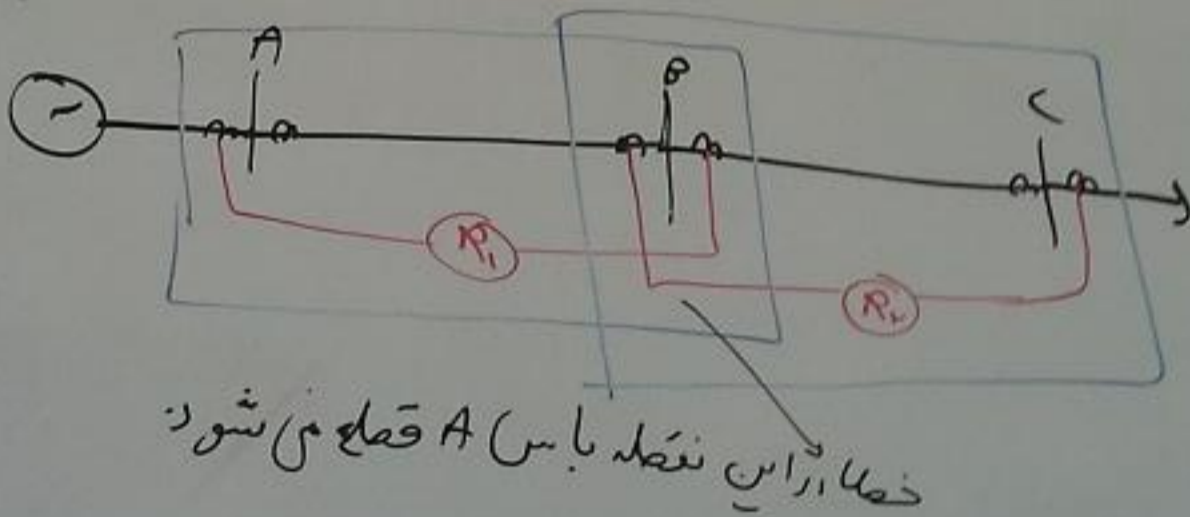 A
B
C
~
R₁
R₂
خطا از این نقطه با س A قطع می شود: